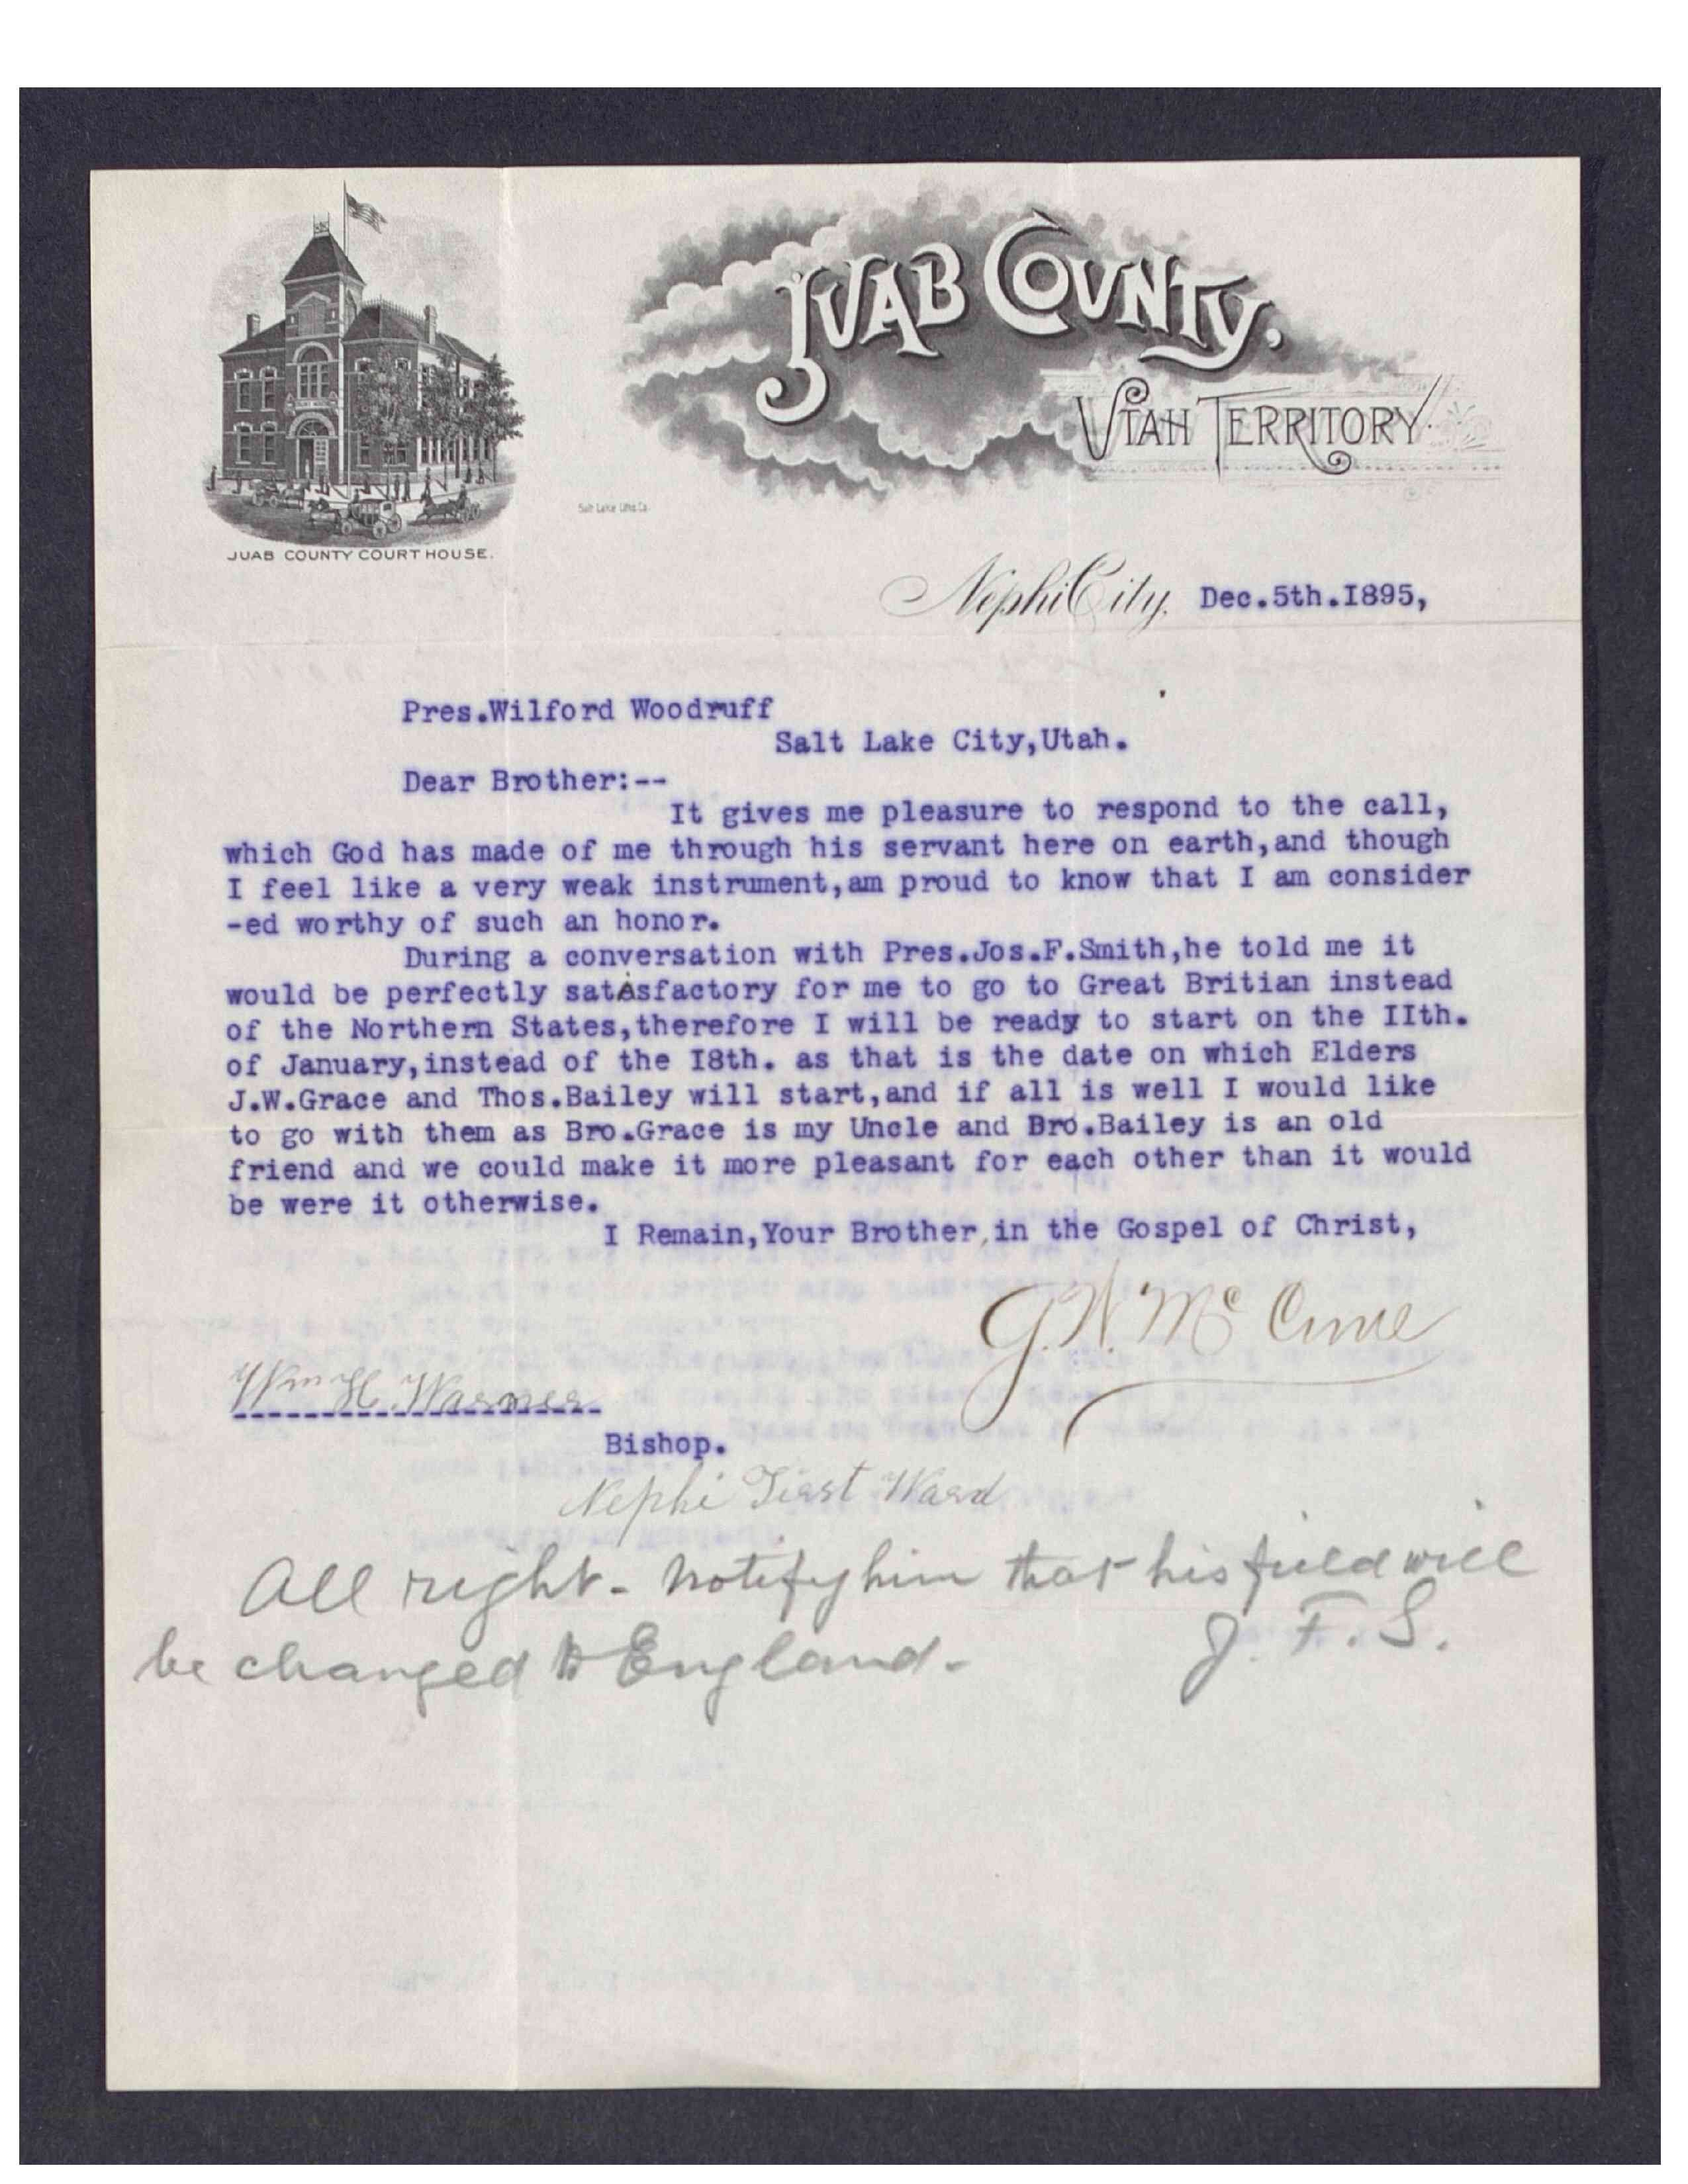 JUAB COUNTY.
UTAH TERRITORY.
Salt Lake Litho. Co.
JUAB COUNTY COURT HOUSE.
Nephi City, Dec.5th.I895,
Pres.Wilford Woodruff
Salt Lake City,Utah.
Dear Brother:--
It gives me pleasure to respond to the call,
which God has made of me through his servant here on earth,and though
I feel like a very weak instrument,am proud to know that I am consider
-ed worthy of such an honor.
During a conversation with Pres.Jos.F.Smith,he told me it
would be perfectly satisfactory for me to go to Great Britian instead
of the Northern States,therefore I will be ready to start on the IIth.
of January,instead of the I8th. as that is the date on which Elders
J.W.Grace and Thos.Bailey will start,and if all is well I would like
to go with them as Bro.Grace is my Uncle and Bro.Bailey is an old
friend and we could make it more pleasant for each other than it would
be were it otherwise.
I Remain,Your Brother,in the Gospel of Christ,
G.W. McCune
Wm H. Warner
Bishop.
Nephi First Ward
All right - notify him that his field will
be changed to England -
J. F. S.